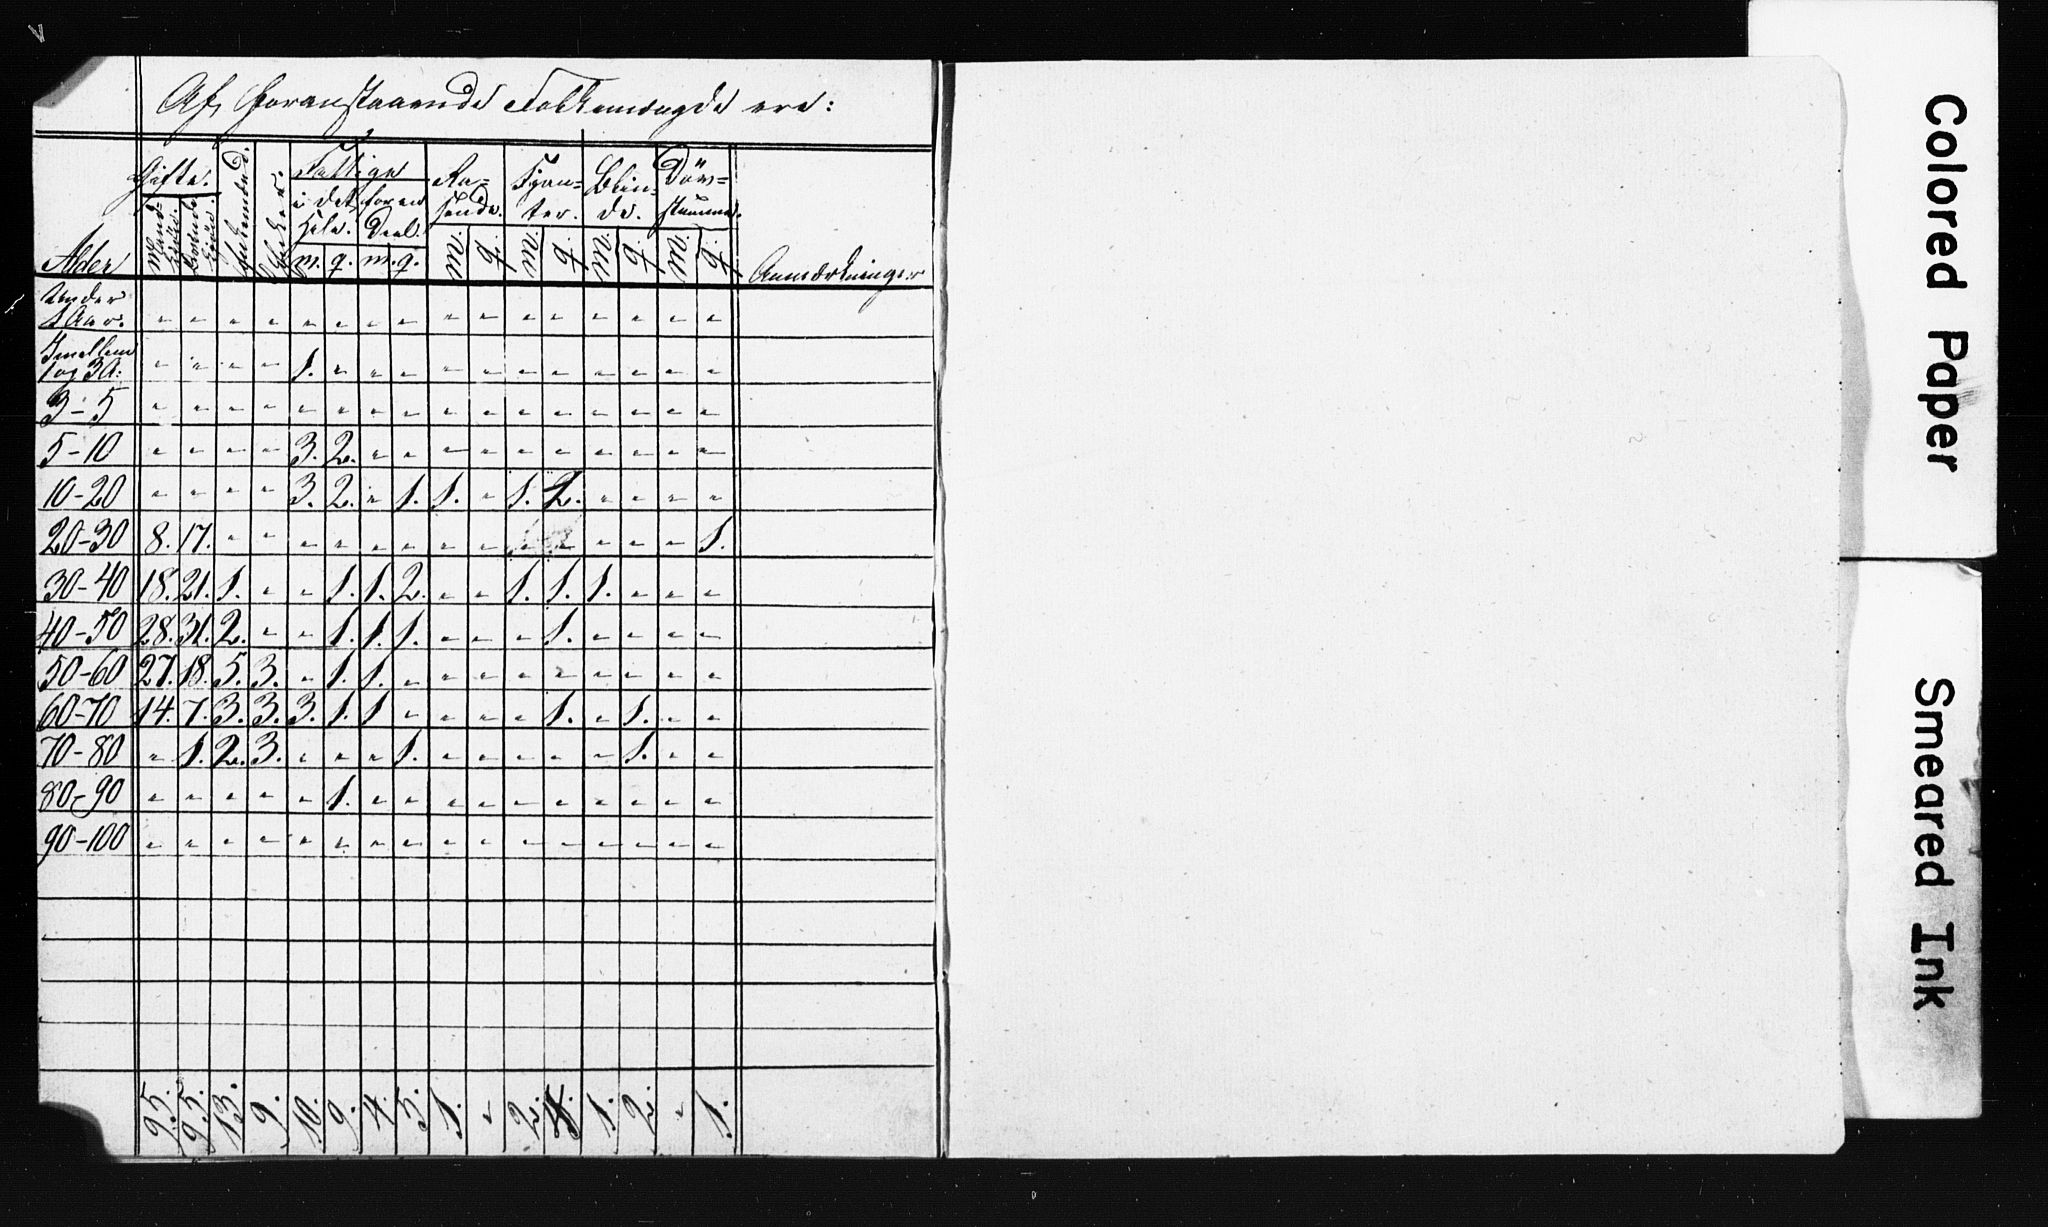 Af foranstaaende Folkemængde ere:
Alder | Gifte. Mand-Kjön. Qvinde Kjön. | Enkemænd. | Enker. | Fattige i det Hele. m. q. | for en Deel. m. q. | Ra-sende. M. q. | Tjan-ter. M. q. | Blin-de. M. q. | Döv-stumme. M. q. | Anmærkninger
Under 1 Aar. | " | " | " | " | " | " | " | " | " | " | " | " | " | " | " | "
Imellem 1 og 3 A: | " | " | " | " | 1. | " | " | " | " | " | " | " | " | " | " | "
3-5 | " | " | " | " | " | " | " | " | " | " | " | " | " | " | " | "
5-10 | " | " | " | " | 3. | 2. | " | " | " | " | " | " | " | " | " | "
10-20 | " | " | " | " | 3. | 2. | " | 1. | 1. | " | 1. | 2. | " | " | " | "
20-30 | 8. | 17. | " | " | " | " | " | " | " | " | " | " | " | " | " | 1.
30-40 | 18. | 21. | 1. | " | " | 1. | 1. | 2. | " | " | 1. | 1. | 1. | " | " | "
40-50 | 28. | 31. | 2. | " | " | 1. | 1. | 1. | " | " | " | 1. | " | " | " | "
50-60 | 27. | 18. | 5. | 3. | " | 1. | 1. | " | " | " | " | " | " | " | " | "
60-70 | 14. | 7. | 3. | 3. | 3. | 1. | 1 | " | " | " | " | 1. | " | 1. | " | "
70-80 | " | 1. | 2. | 3. | " | " | " | 1. | " | " | " | " | " | 1. | " | "
80-90 | " | " | " | " | " | 1. | " | " | " | " | " | " | " | " | " | "
90-100 | " | " | " | " | " | " | " | " | " | " | " | " | " | " | " | "
95. | 95. | 13. | 9. | 10. | 9. | 4. | 5. | 1. | " | 2. | 4. | 1. | 2. | " | 1.
Colored Paper
Smeared Ink